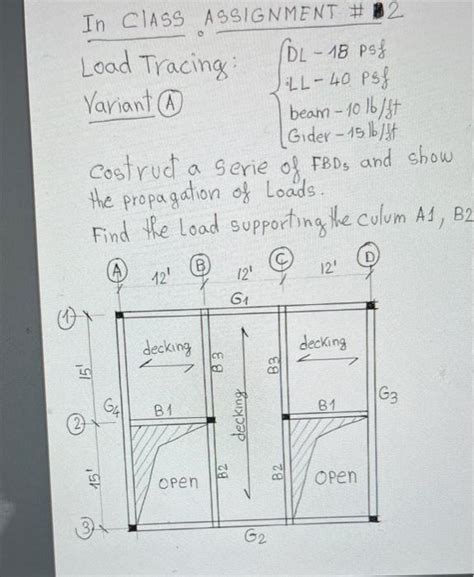 In CLASS ASSIGNMENT # 2
Load Tracing:
Variant A
DL - 18 psf
LL - 40 psf
beam - 10 lb/ft
Gider - 15 lb/ft
Costruct a serie of FBDs and show
the propagation of Loads.
Find the Load supporting the culum A1, B2
A 12' B 12' C 12' D
G1
1
decking
B3
decking
B3
decking
15'
G4
B1
B1
G3
2
15'
OPEN
B2
B2
OPEN
3
G2